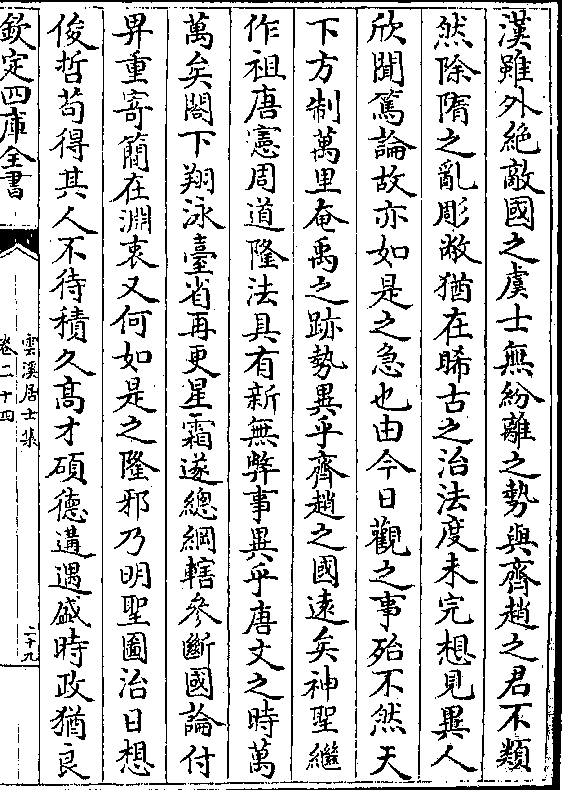 漢雖外絶敵國之虞士無紛離之勢與齊趙之君不類
然除隋之亂彫敝猶在晞古之治法度未完想見異人
欣聞篤論故亦如是之急也由今日觀之事殆不然天
下方制萬里奄禹之跡勢異乎齊趙之國逺矣神聖繼
作祖唐憲周道隆法具有新無弊事異乎唐文之時萬
萬矣閣下翔泳臺省再更星霜遂總綱轄參斷國論付
畀重寄簡在淵衷又何如是之隆邪乃明聖圖治日想
俊哲苟得其人不待積久髙才碩德遘遇盛時政猶良
欽定四庫全書
雲溪居士集
卷二十四
二十九